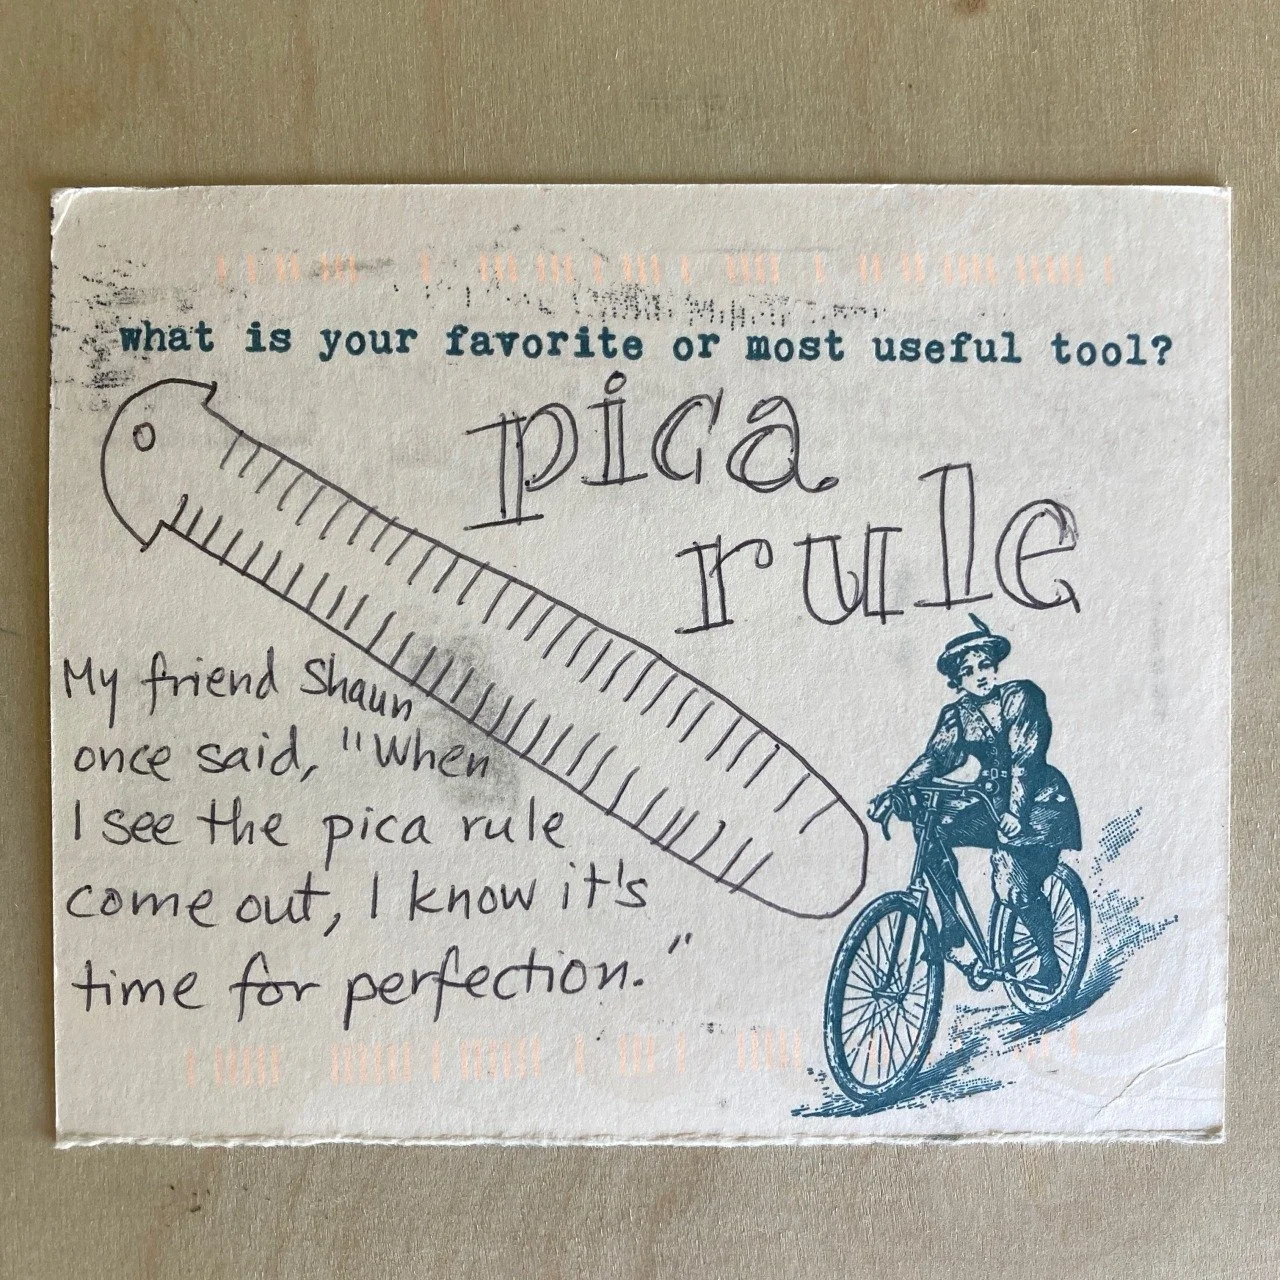 what is your favorite or most useful tool?
pica
rule
My friend Shaun
once said, "When
I see the pica rule
come out, I know it's
time for perfection."